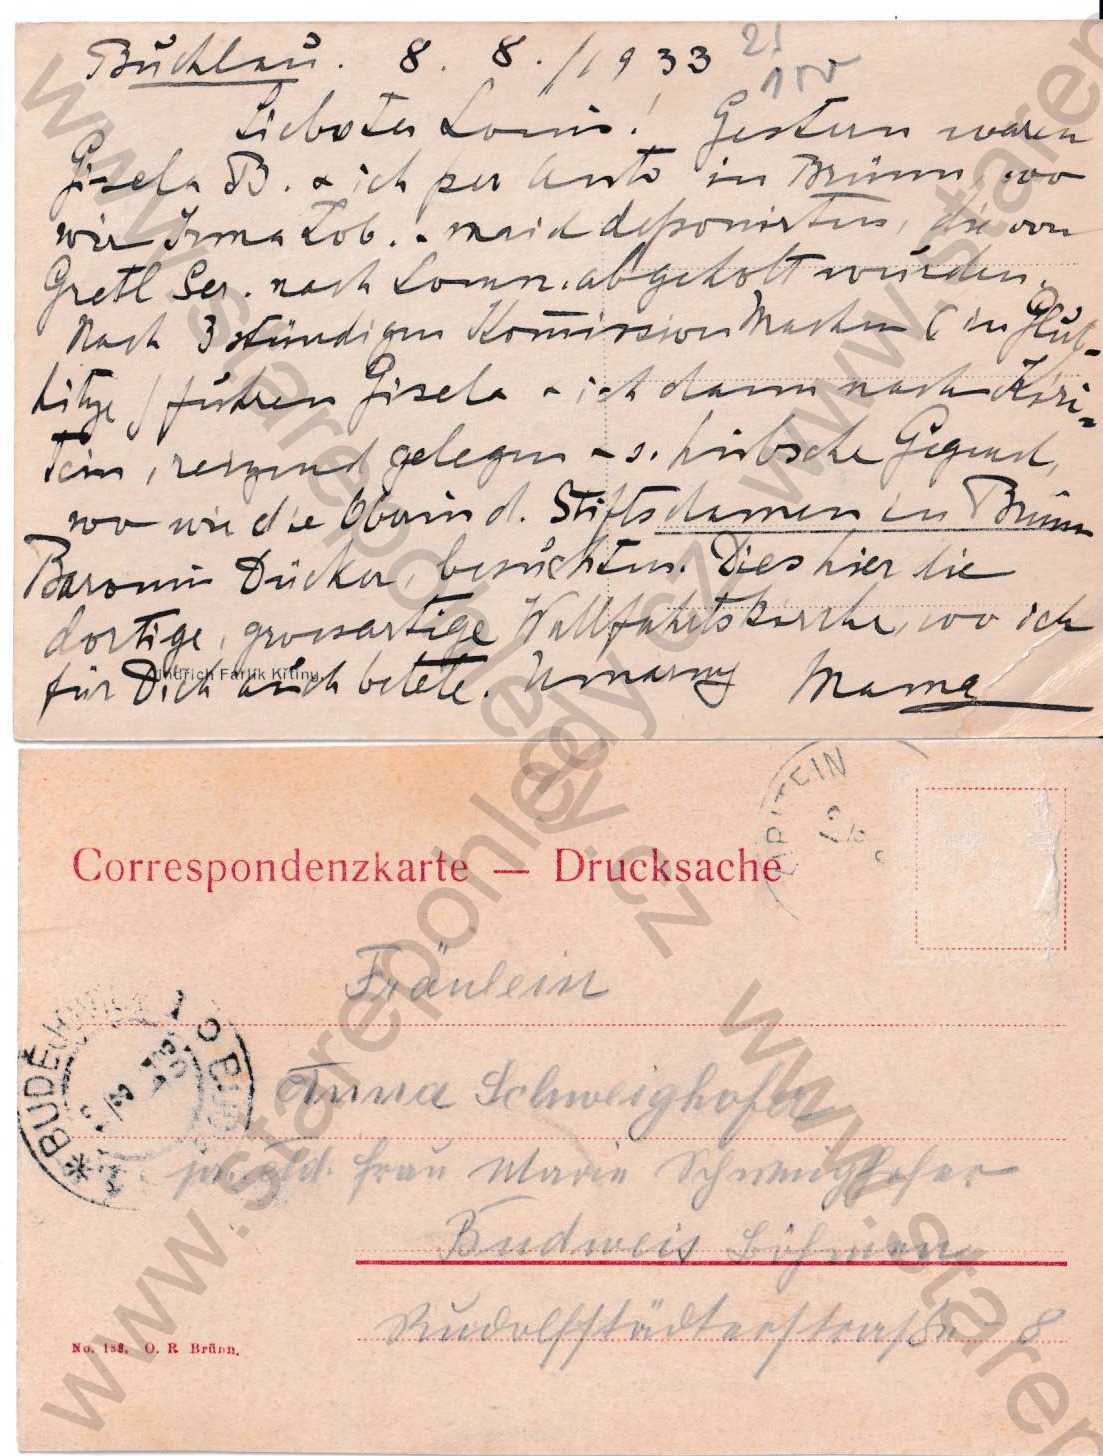 Buchlau. 8. 8./1933 21
Liebster Louis! Gestern waren
Gisela B. & ich per Auto in Brünn, wo
wir Irma Lob. - maid deponirten, die von
Gretl Ser. nach Lomn. abgeholt wurden.
Nach 3 stündigen Kommission Machen (in Glut-
hitze) fuhren Gisela & ich dann nach Kiri-
tein, reizend gelegen - s. hübsche Gegend,
wo wir die Oberin d. Stiftsdamen in Brünn
Baronin Dücker, besuchten. Dies hier die
dortige, grossartige Wallfahrtskirche, wo ich
für Dich auch betete. Umarmg Mama
Jindřich Farlik Kitiny.
KIRITEIN
Correspondenzkarte — Drucksache
Fräulein
BUDĚJOVICE 1 BUDWEIS
Anna Schweighofer
pr. Adr. Frau Marie Schweighofer
Budweis Böhmen
Rudolfstädterstraße 8
No. 188. O. R Brünn.
www.starepohledy.cz
www.starepohledy.cz